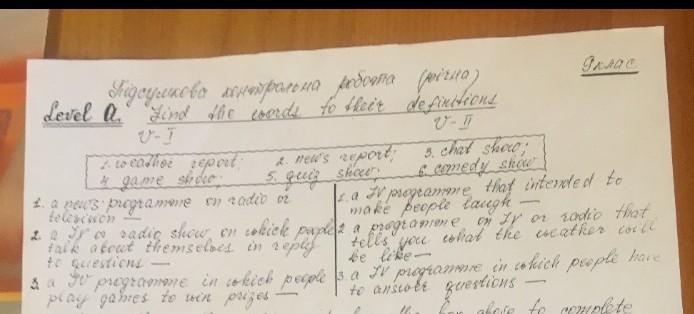 9 клас
Підсумкова контрольна робота (річна)
Level A. Find the words to their definitions
V-I V-II
1. weather report; 2. news report; 3. chat show;
4. game show; 5. quiz show; 6. comedy show
1. a news programme on radio or
television —
2. a TV or radio show on which people
talk about themselves in reply
to questions —
3. a TV programme in which people
play games to win prizes —
1. a TV programme that intended to
make people laugh —
2. a programme on TV or radio that
tells you what the weather will
be like —
3. a TV programme in which people have
to answer questions —
the box above to complete